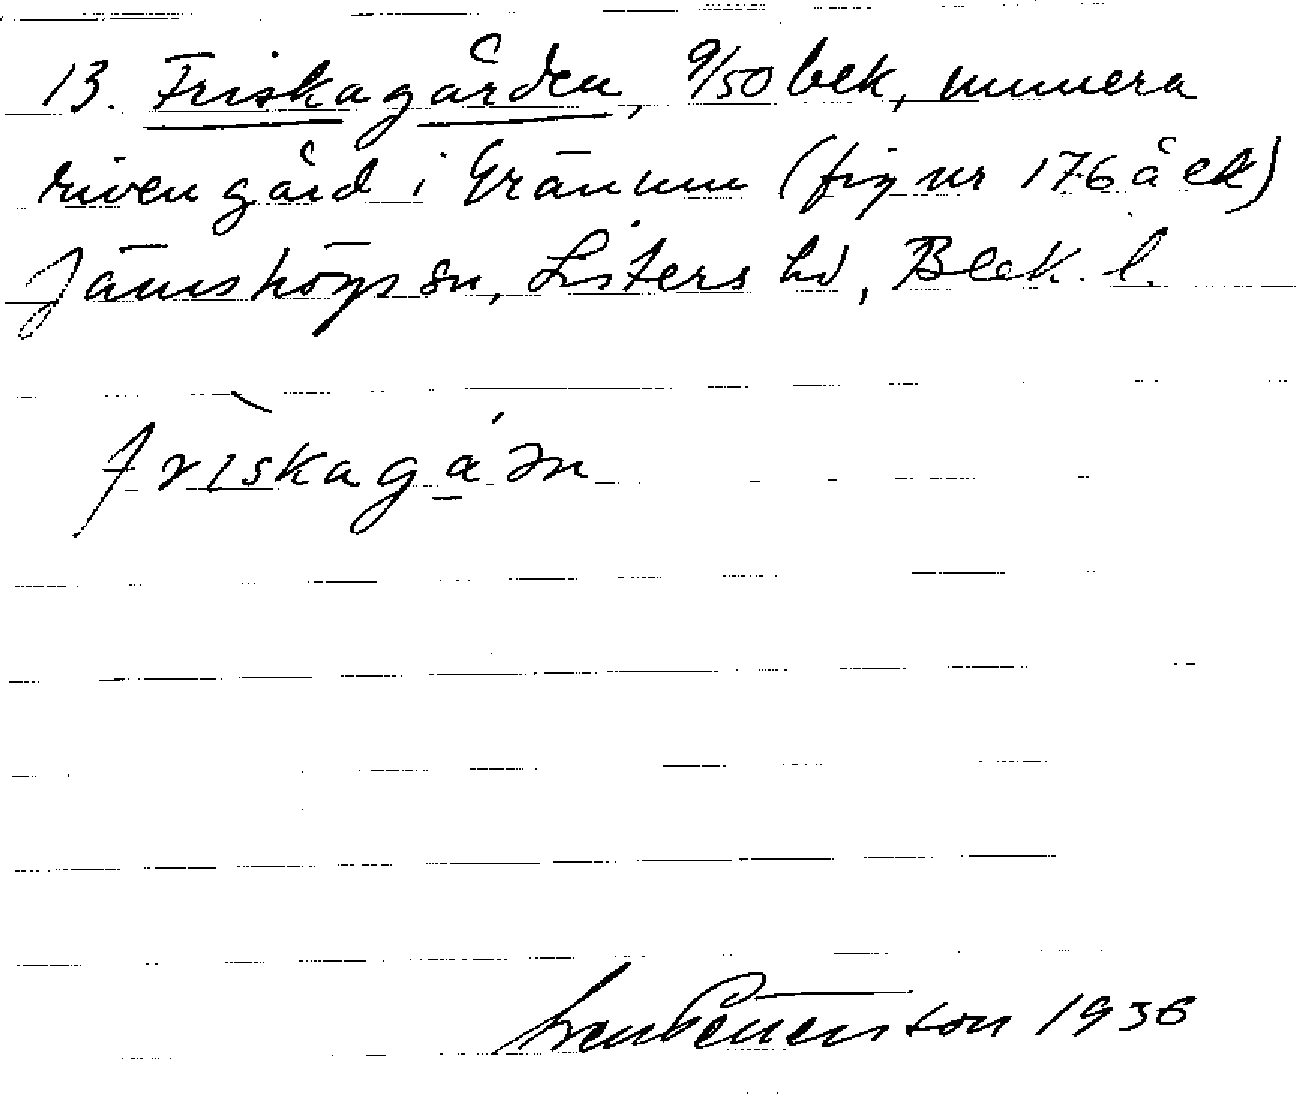 13. Friskagården, 9/50 bek, numera
riven gård i Grännum (fig nr 176 å ek)
Jämshögs sn, Listers hd, Blek. l.
friskagá
1936